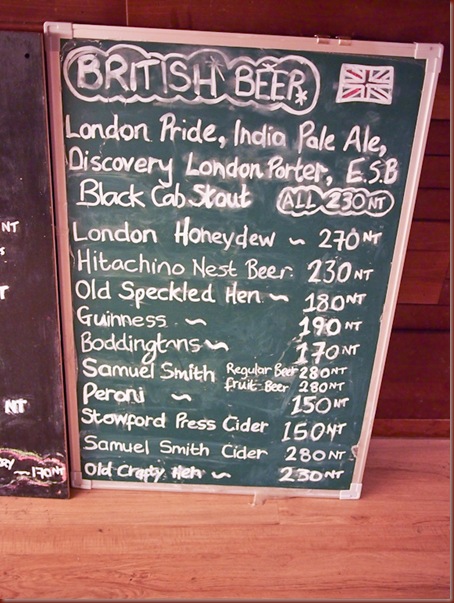 BRITISH BEER*
London Pride, India Pale Ale,
Discovery London Porter, E.S.B
Black Cab Stout ALL 230 NT
London Honeydew ~ 270 NT
Hitachino Nest Beer 230 NT
Old Speckled Hen ~ 180 NT
Guinness ~ 190 NT
Boddingtons ~ 170 NT
Samuel Smith Regular Beer 280 NT
fruit Beer 280 NT
Peroni ~ 150 NT
Stowford Press Cider 150 NT
Samuel Smith Cider 280 NT
Old Crafty Hen ~ 230 NT
NT
NT
170 NT